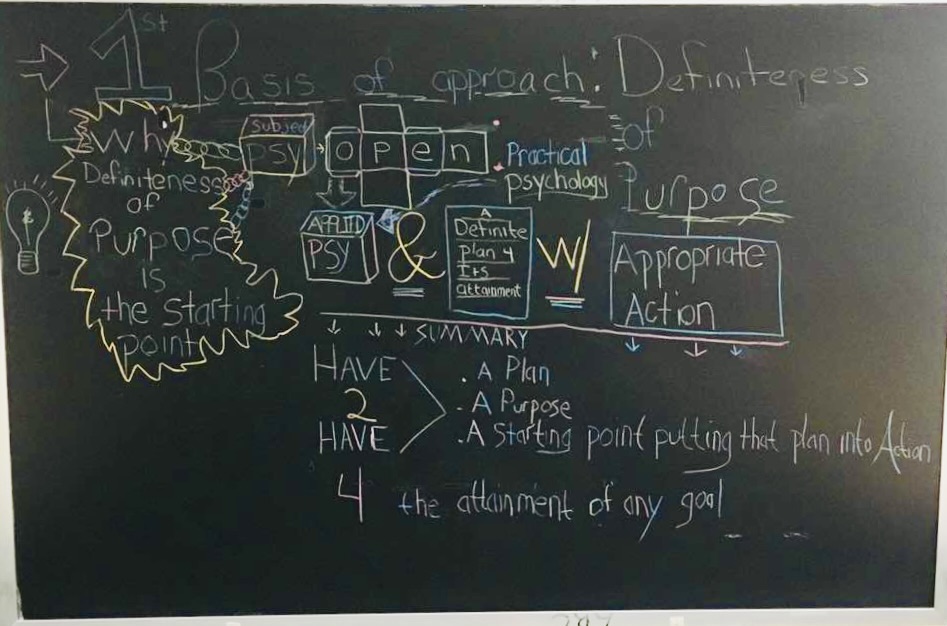 1st Basis of approach: Definiteness
of
Purpose
Why
Definiteness
of
Purpose
is
the starting
point
Subject
PSY
open
Practical
psychology
APPLIED
PSY
&
A
Definite
plan 4
Its
attainment
W/
Appropriate
Action
SUMMARY
HAVE
2
HAVE
. A Plan
. A Purpose
. A Starting point putting that plan into Action
4 the attainment of any goal